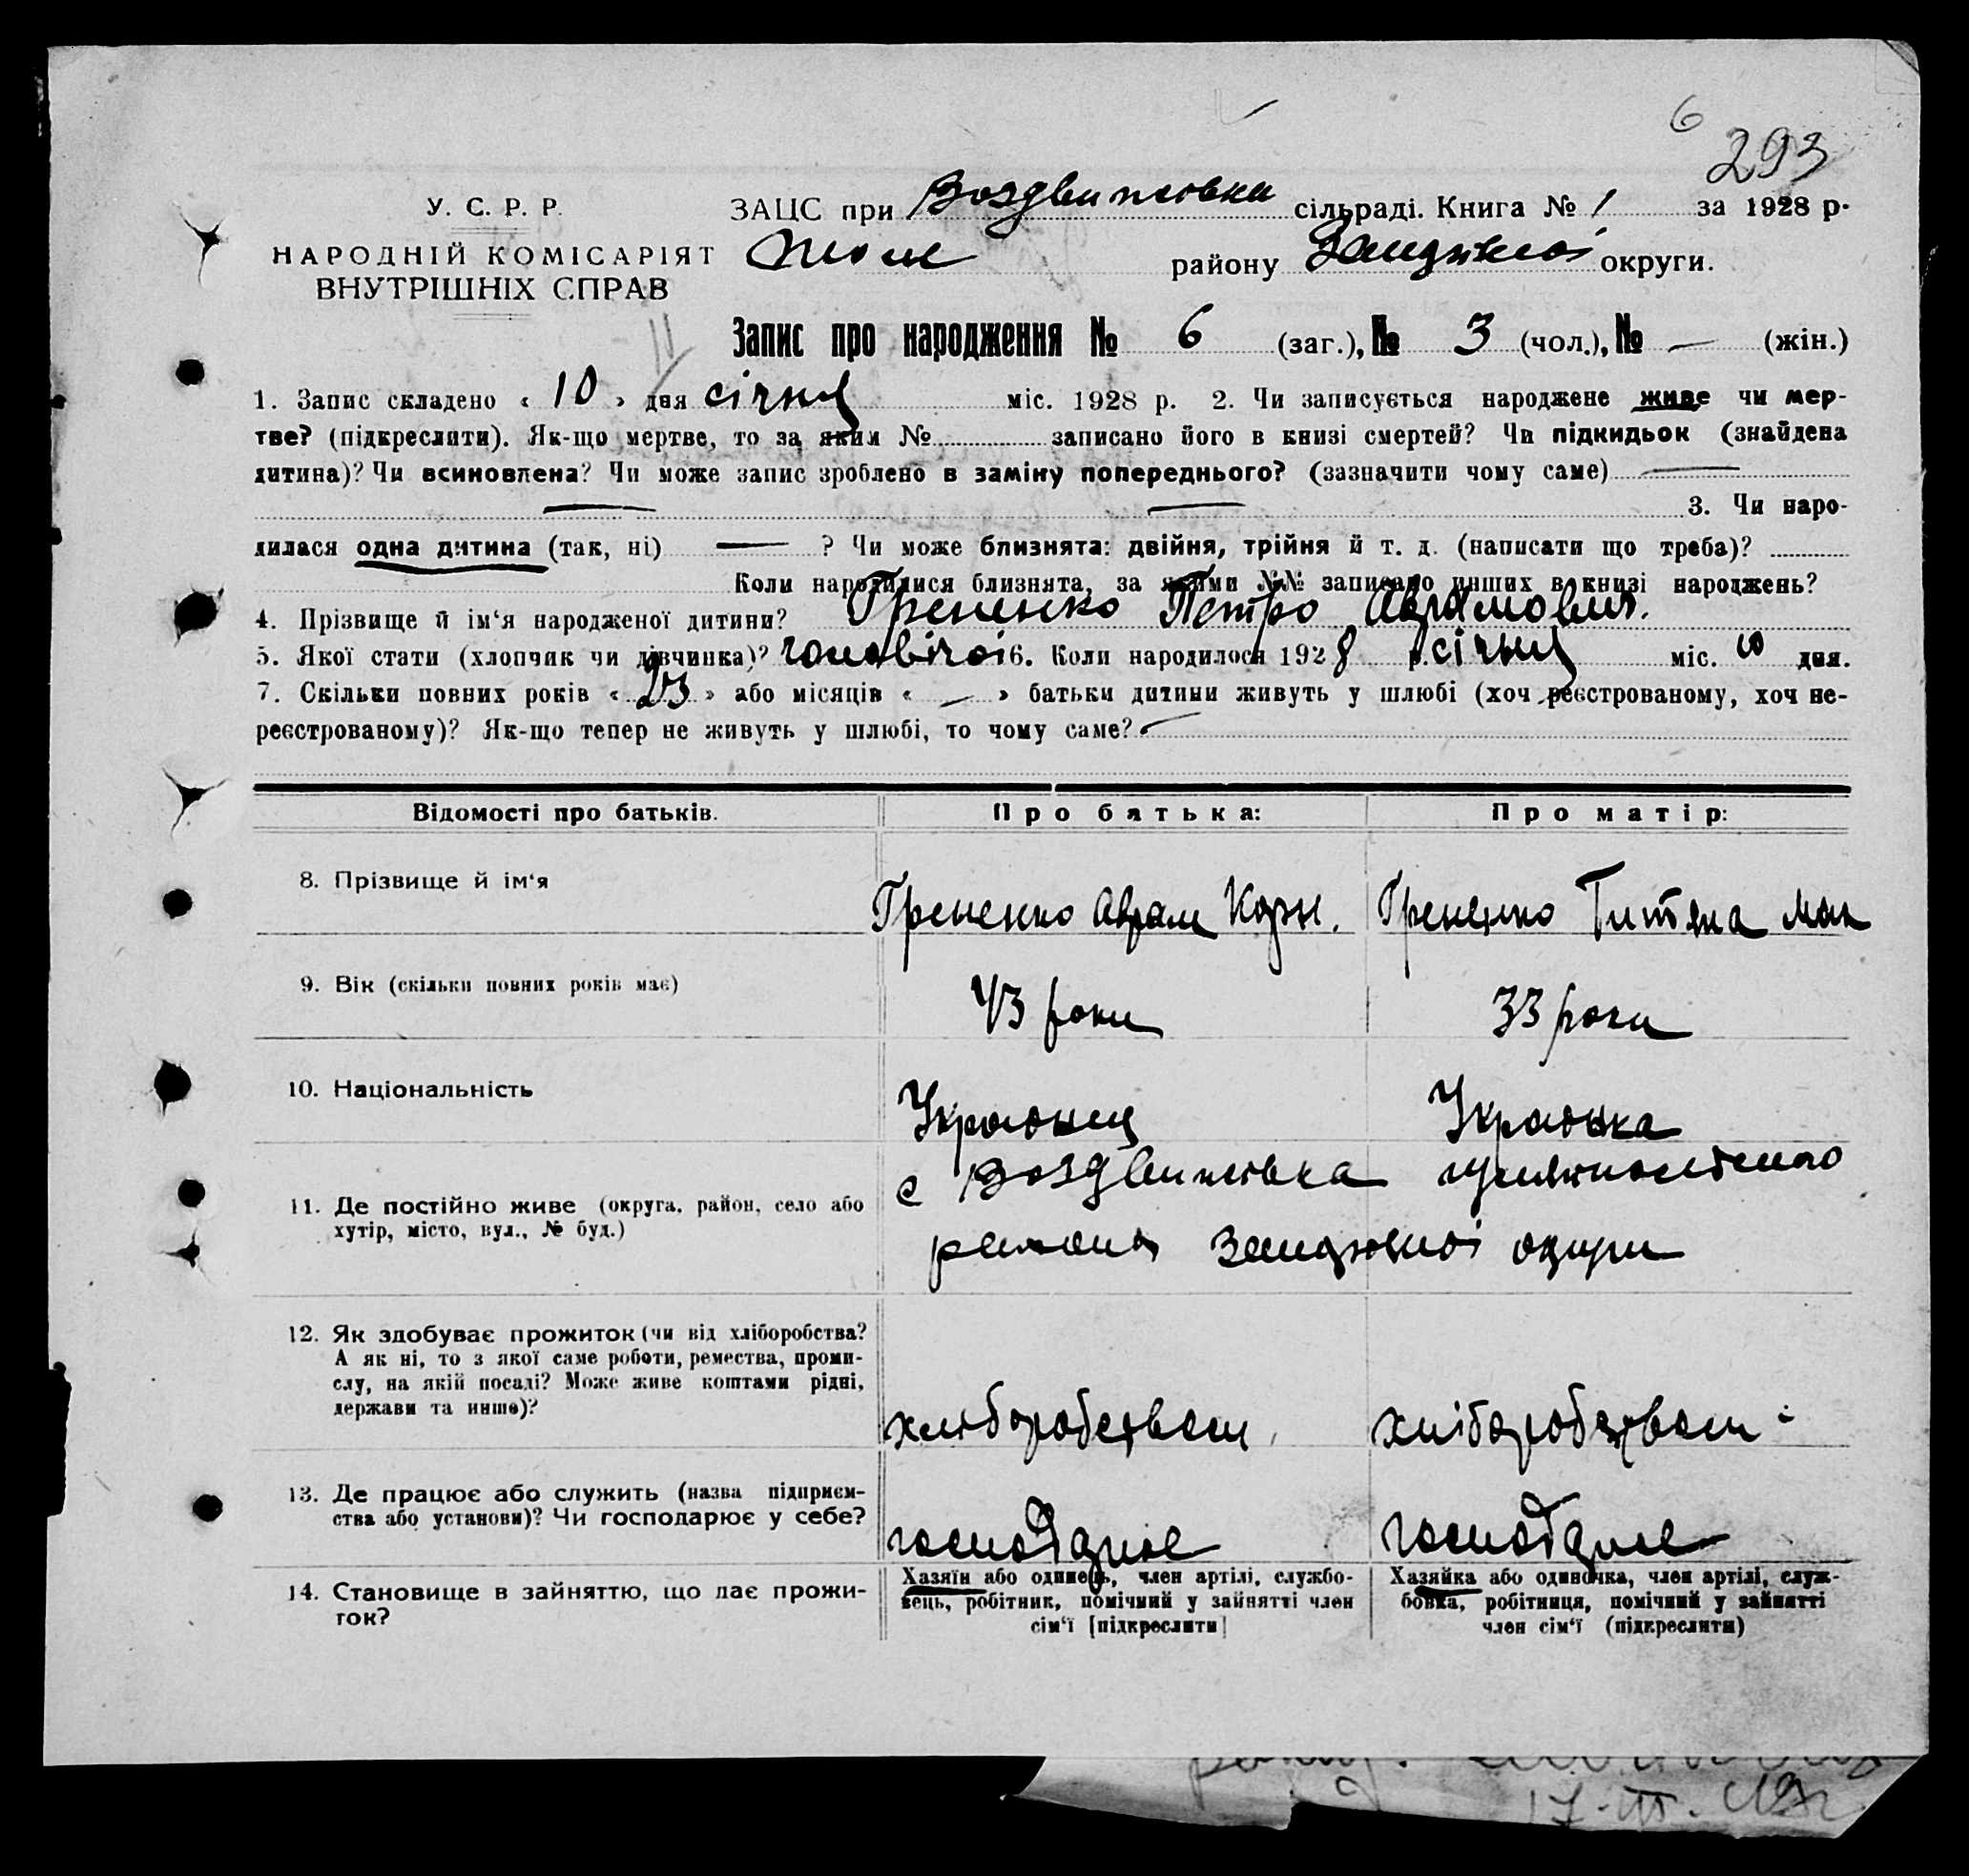 6
293
У. С. Р. Р. ЗАЦС при Воздвижівки сільраді. Книга № 1 за 1928 р.
НАРОДНІЙ КОМІСАРІЯТ району округи.
ВНУТРІШНІХ СПРАВ
Запис про народження № 6 (заг.), № 3 (чол.), № — (жін.)
1. Запис складено « 10 » дня січня міс. 1928 р. 2. Чи записується народжене живе чи мер-
тве? (підкреслити). Як-що мертве, то за яким № записано його в книзі смертей? Чи підкидьок (знайдена
дитина)? Чи всиновлена? Чи може запис зроблено в заміну попереднього? (зазначити чому саме) —
— — 3. Чи наро-
дилася одна дитина (так, ні) — ? Чи може близнята: двійня, трійня й т. д. (написати що треба)?
Коли народилися близнята, за якими №№ записано инших в книзі народжень?
4. Прізвище й ім'я народженої дитини? Гременко Петро Аврамович.
5. Якої стати (хлопчик чи дівчинка)? чоловічої 6. Коли народилося 1928 р. січня міс. 10 дня.
7. Скільки повних років « 23 » або місяців « — » батьки дитини живуть у шлюбі (хоч реєстрованому, хоч не-
реєстрованому)? Як-що тепер не живуть у шлюбі, то чому саме? —
Відомості про батьків. Про батька: Про матір:
8. Прізвище й ім'я
Гременко Аврам Корн. Гременко Титяна
9. Вік (скільки повних років має)
43 роки 33 роки
10. Національність
Українец Українка
с Воздвижівка
11. Де постійно живе (округа, район, село або
хутір, місто, вул., № буд.)
района округи
12. Як здобуває прожиток (чи від хліборобства?
А як ні, то з якої саме роботи, ремества, проми-
слу, на якій посаді? Може живе коштами рідні,
держави та инше)?
хліборобством хліборобством
13. Де працює або служить (назва підприєм-
ства або установи)? Чи господарює у себе?
господарює господарює
14. Становище в зайняттю, що дає прожи-
ток?
Хазяїн або одинець, член артілі, службо-
вець, робітник, помічний у зайнятті член
сім'ї [підкреслити]
Хазяйка або одиночка, член артілі, служ-
бовка, робітниця, помічний у зайнятті
член сім'ї (підкреслити)